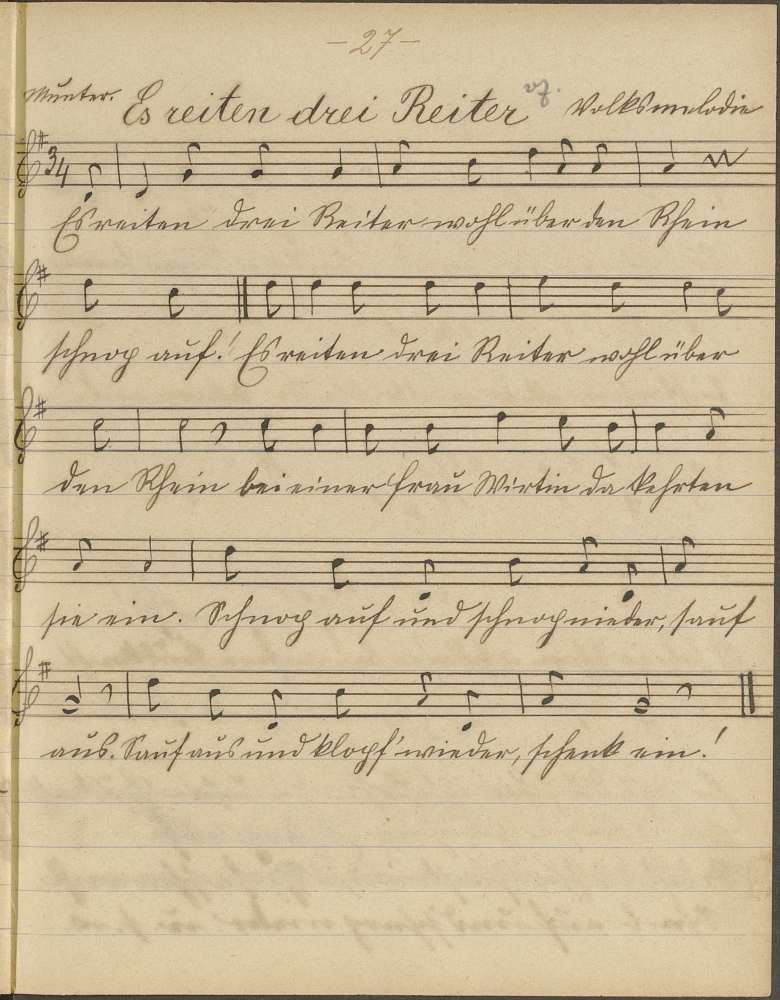 - 27 -
Munter. Es reiten drei Reiter Volksmelodie
3/4
Es reiten drei Reiter wohl über den Rhein
schnapp auf! Es reiten drei Reiter wohl über
den Rhein bei einer Frau Wirtin da kehrten
sie ein. Schnapp auf und schnapp nieder, sauf
aus. Sauf aus und klopf' wieder, schenk ein!